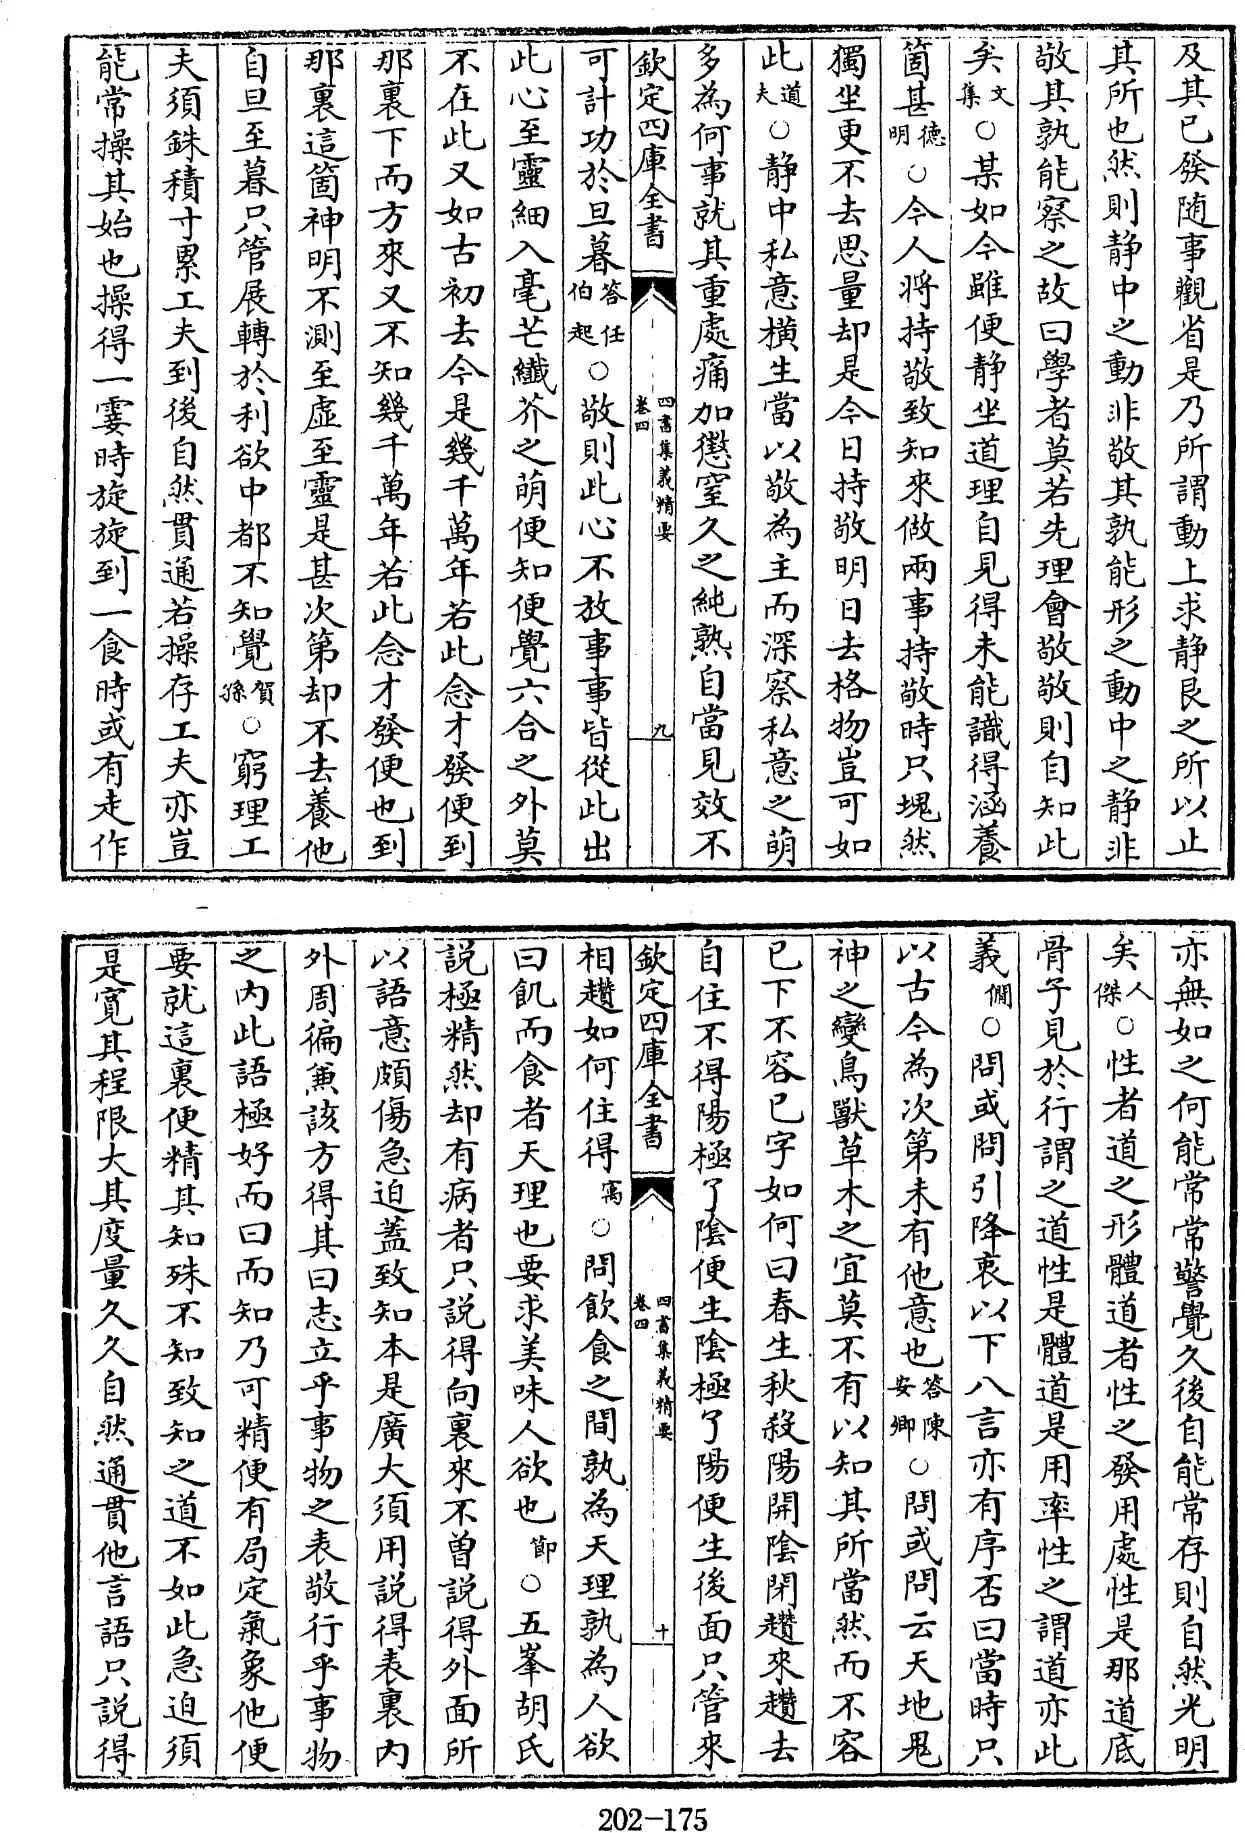 及其已發隨事觀省是乃所謂動上求静艮之所以止
其所也然則静中之動非敬其孰能形之動中之静非
敬其孰能察之故曰學者莫若先理會敬敬則自知此
矣文集○某如今雖便静坐道理自見得未能識得涵養
箇甚德明○今人將持敬致知來做兩事持敬時只塊然
獨坐更不去思量却是今日持敬明日去格物豈可如
此道夫○静中私意横生當以敬為主而深察私意之萌
多為何事就其重處痛加懲窒久之純熟自當見效不
欽定四庫全書
四書集義精要
卷四
九
可計功於旦暮答任伯起○敬則此心不放事事皆從此出
此心至靈細入毫芒纖芥之萌便知便覺六合之外莫
不在此又如古初去今是幾千萬年若此念才發便到
那裏下而方來又不知幾千萬年若此念才發便也到
那裏這箇神明不測至虚至靈是甚次第却不去養他
自旦至暮只管展轉於利欲中都不知覺賀孫○窮理工
夫須銖積寸累工夫到後自然貫通若操存工夫亦豈
能常操其始也操得一霎時旋旋到一食時或有走作
亦無如之何能常常警覺久後自能常存則自然光明
矣人傑○性者道之形體道者性之發用處性是那道底
骨子見於行謂之道性是體道是用率性之謂道亦此
義僩○問或問引降衷以下八言亦有序否曰當時只
以古今為次第未有他意也答陳安卿○問或問云天地鬼
神之變鳥獸草木之宜莫不有以知其所當然而不容
已下不容已字如何曰春生秋殺陽開陰閉趲來趲去
自住不得陽極了陰便生陰極了陽便生後面只管來
欽定四庫全書
四書集義精要
卷四
十
相趲如何住得㝢○問飲食之間孰為天理孰為人欲
曰飢而食者天理也要求美味人欲也節○五峯胡氏
説極精然却有病者只説得向裏來不曽説得外面所
以語意頗傷急迫蓋致知本是廣大須用説得表裏内
外周徧兼該方得其曰志立乎事物之表敬行乎事物
之内此語極好而曰而知乃可精便有局定氣象他便
要就這裏便精其知殊不知致知之道不如此急迫須
是寛其程限大其度量久久自然通貫他言語只説得
202-175